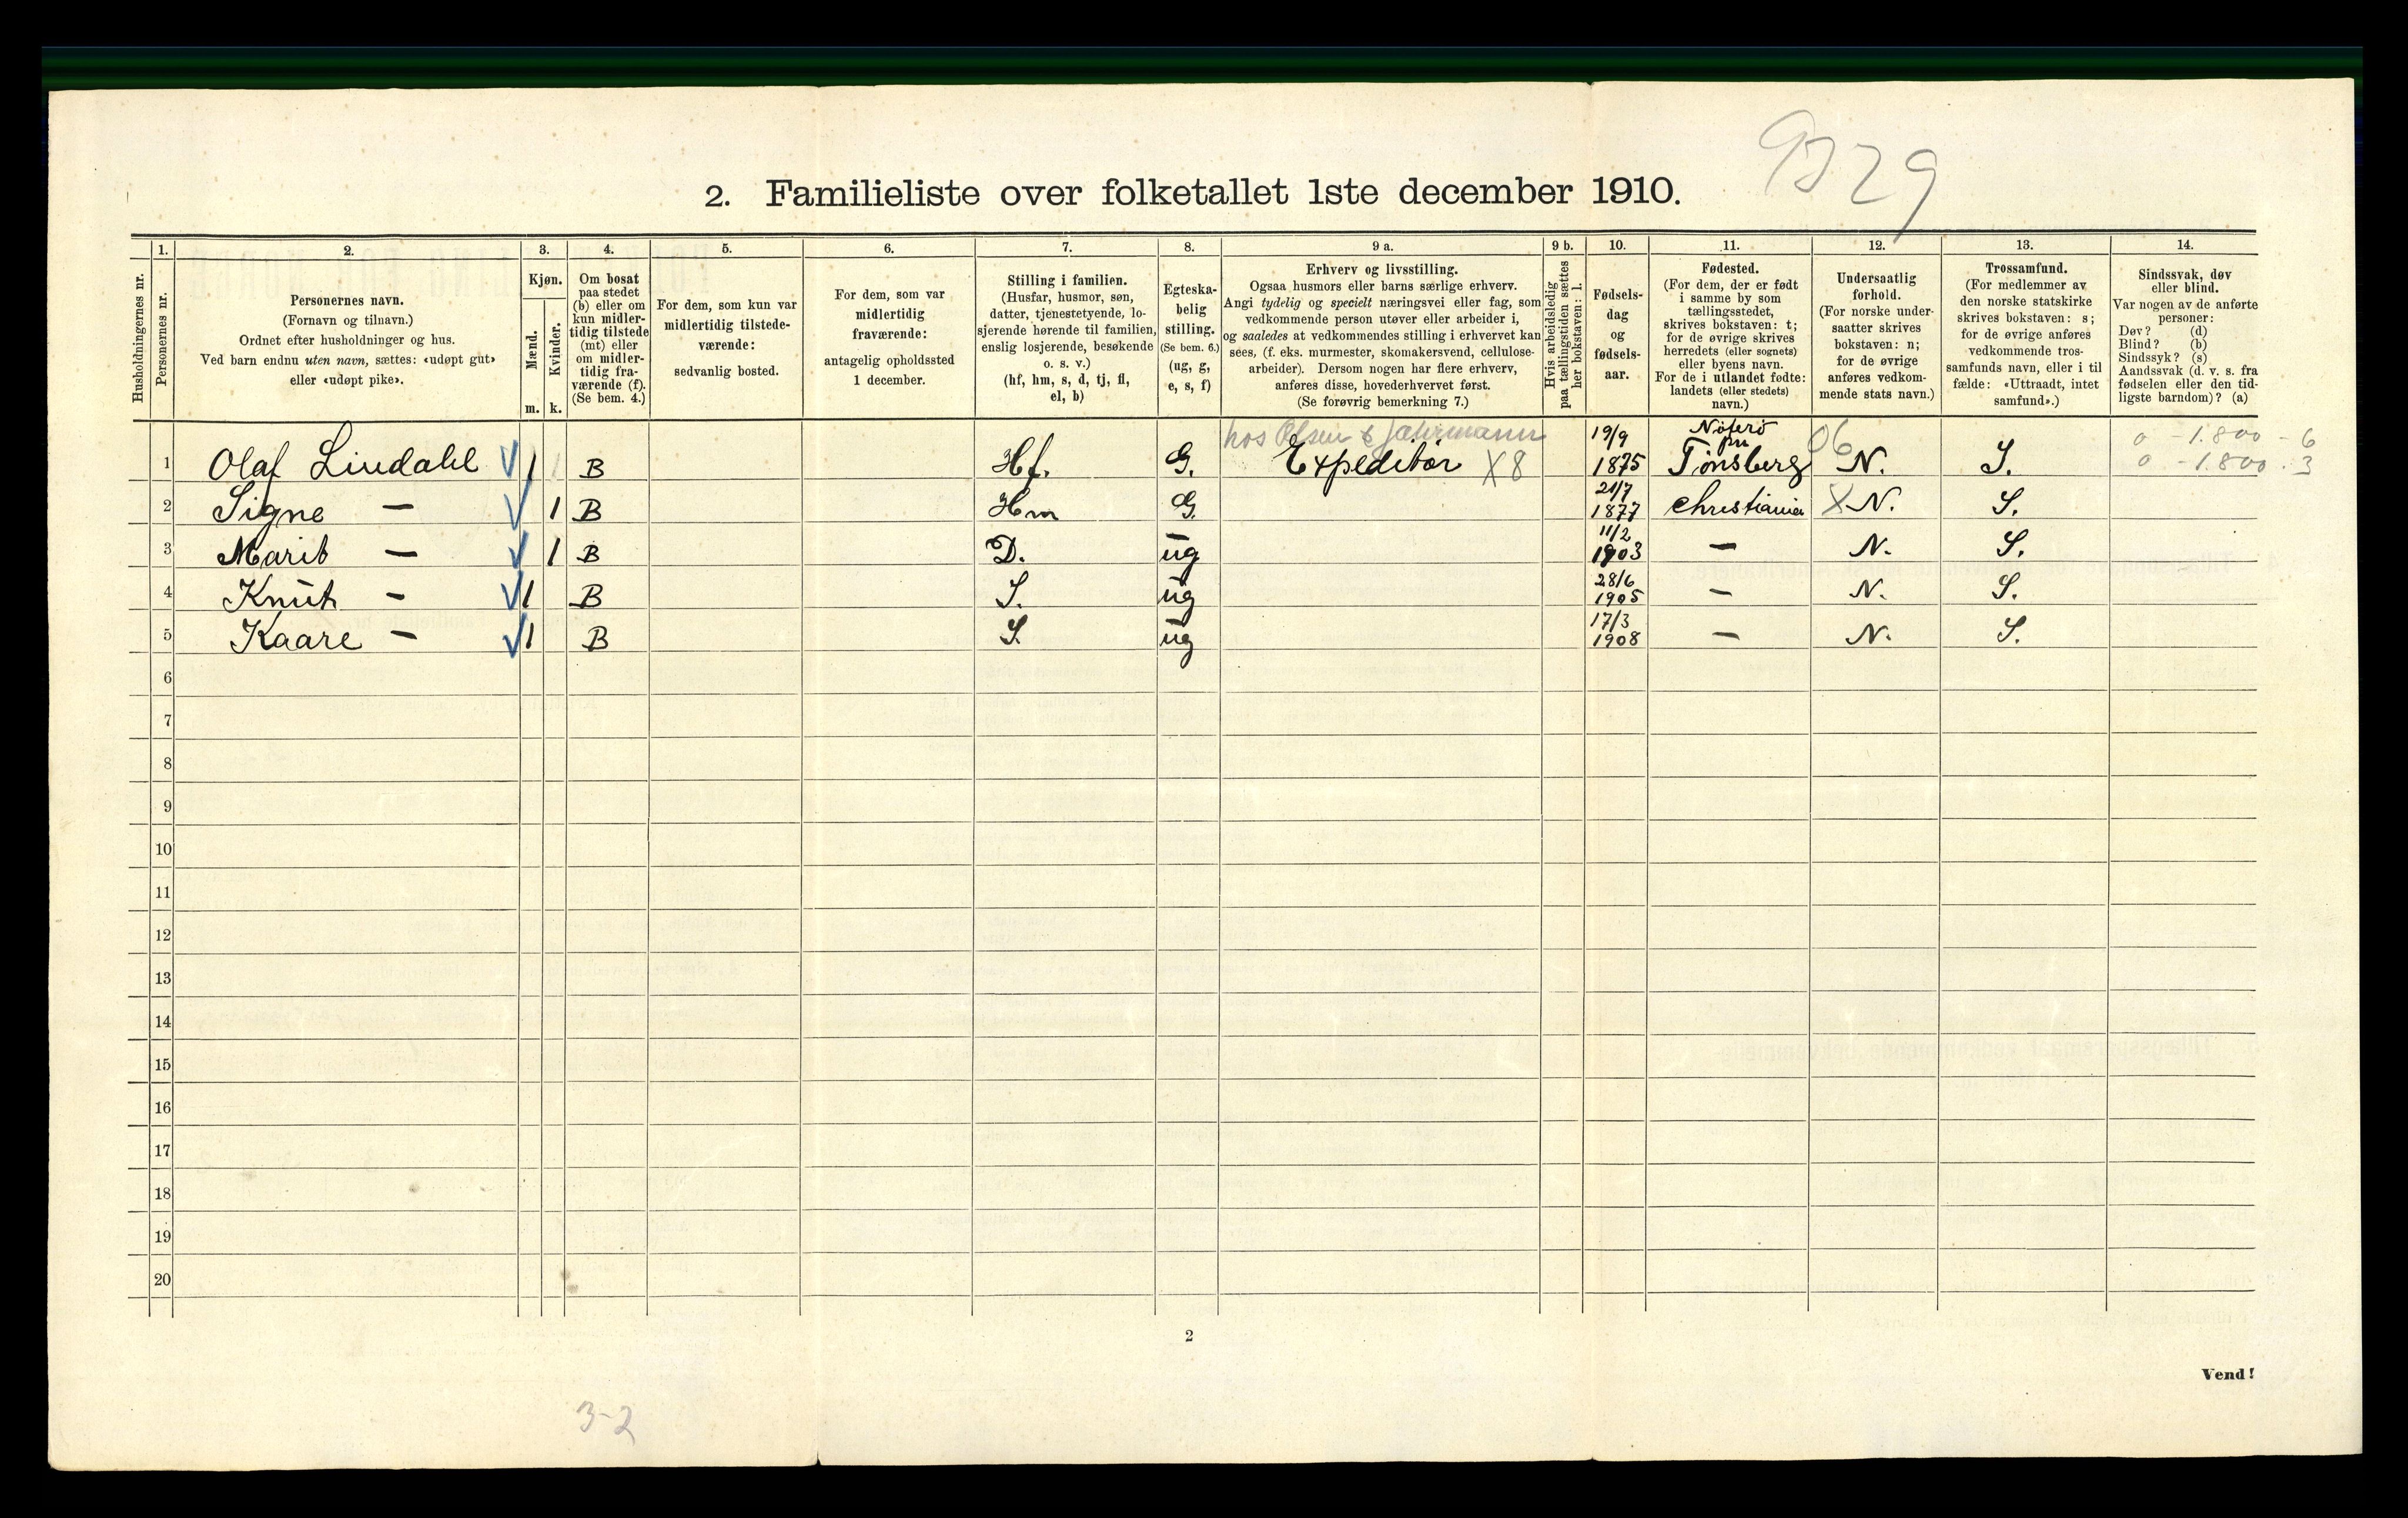 9329
2. Familieliste over folketallet 1ste december 1910.
Husholdningernes nr.
1.
Personernes nr.
2.
Personernes navn.
(Fornavn og tilnavn.)
Ordnet efter husholdninger og hus.
Ved barn endnu uten navn, sættes: «udøpt gut»
eller «udøpt pike».
3.
Kjøn.
Mænd.
Kvinder.
m. k.
4.
Om bosat
paa stedet
(b) eller om
kun midler-
tidig tilstede
(mt) eller
om midler-
tidig fra-
værende (f).
(Se bem. 4.)
5.
For dem, som kun var
midlertidig tilstede-
værende:
sedvanlig bosted.
6.
For dem, som var
midlertidig
fraværende:
antagelig opholdssted
1 december.
7.
Stilling i familien.
(Husfar, husmor, søn,
datter, tjenestetyende, lo-
sjerende hørende til familien,
enslig losjerende, besøkende
o. s. v.)
(hf, hm, s, d, tj, fl,
el, b)
8.
Egteska-
belig
stilling.
(Se bem. 6.)
(ug, g,
e, s, f)
9 a.
Erhverv og livsstilling.
Ogsaa husmors eller barns særlige erhverv.
Angi tydelig og specielt næringsvei eller fag, som
vedkommende person utøver eller arbeider i,
og saaledes at vedkommendes stilling i erhvervet kan
sees, (f. eks. murmester, skomakersvend, cellulose-
arbeider). Dersom nogen har flere erhverv,
anføres disse, hovederhvervet først.
(Se forøvrig bemerkning 7.)
9 b.
Hvis arbeidsledig
paa tællingstiden sættes
her bokstaven: l.
10.
Fødsels-
dag
og
fødsels-
aar.
11.
Fødested.
(For dem, der er født
i samme by som
tællingsstedet,
skrives bokstaven: t;
for de øvrige skrives
herredets (eller sognets)
eller byens navn.
For de i utlandet fødte:
landets (eller stedets)
navn.)
12.
Undersaatlig
forhold.
(For norske under-
saatter skrives
bokstaven: n;
for de øvrige
anføres vedkom-
mende stats navn.)
13.
Trossamfund.
(For medlemmer av
den norske statskirke
skrives bokstaven: s;
for de øvrige anføres
vedkommende tros-
samfunds navn, eller i til
fælde: «Uttraadt, intet
samfund».)
14.
Sindssvak, døv
eller blind.
Var nogen av de anførte
personer:
Døv? (d)
Blind? (b)
Sindssyk? (s)
Aandssvak (d. v. s. fra
fødselen eller den tid-
ligste barndom)? (a)
hos Olsen & 19/9 Nøterø 06 0 - 1.800 - 6
1 Olaf Lindahl 1 B Hf. G. Expeditør X8 1875 pr Tønsberg N. S. 0 - 1.800 . 3
2 Signe — 1 B Hm G. 21/7 1877 Christiania X N. S.
3 Marit — 1 B D. ug 11/2 1903 — N. S.
4 Knut — 1 B S. ug 28/6 1905 — N. S.
5 Kaare — 1 B S. ug 17/3 1908 — N. S.
6
7
8
9
10
11
12
13
14
15
16
17
18
19
20
2
Vend!
3-2